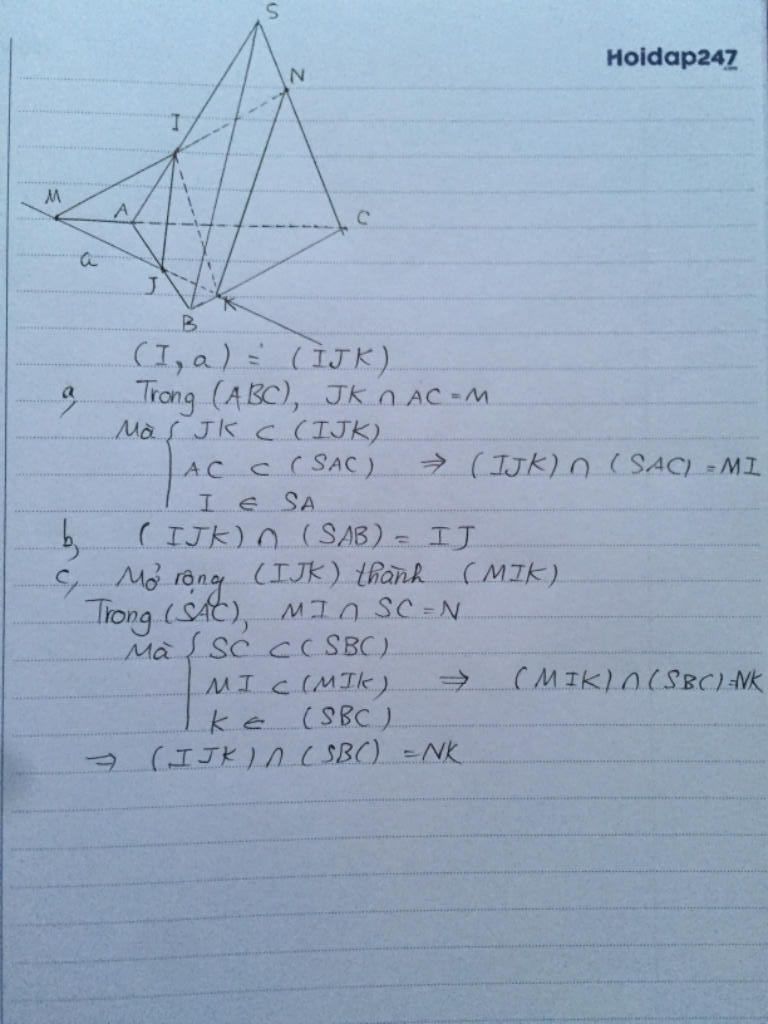 Hoidap247
.com
S
N
I
M
A
C
a
J
K
B
(I, a) ≡ (IJK)
a, Trong (ABC), JK ∩ AC = M
Mà { JK ⊂ (IJK)
AC ⊂ (SAC) ⇒ (IJK) ∩ (SAC) = MI
I ∈ SA
b, (IJK) ∩ (SAB) = IJ
c, Mở rộng (IJK) thành (MIK)
Trong (SAC), MI ∩ SC = N
Mà { SC ⊂ (SBC)
MI ⊂ (MIK) ⇒ (MIK) ∩ (SBC) = NK
K ∈ (SBC)
⇒ (IJK) ∩ (SBC) = NK